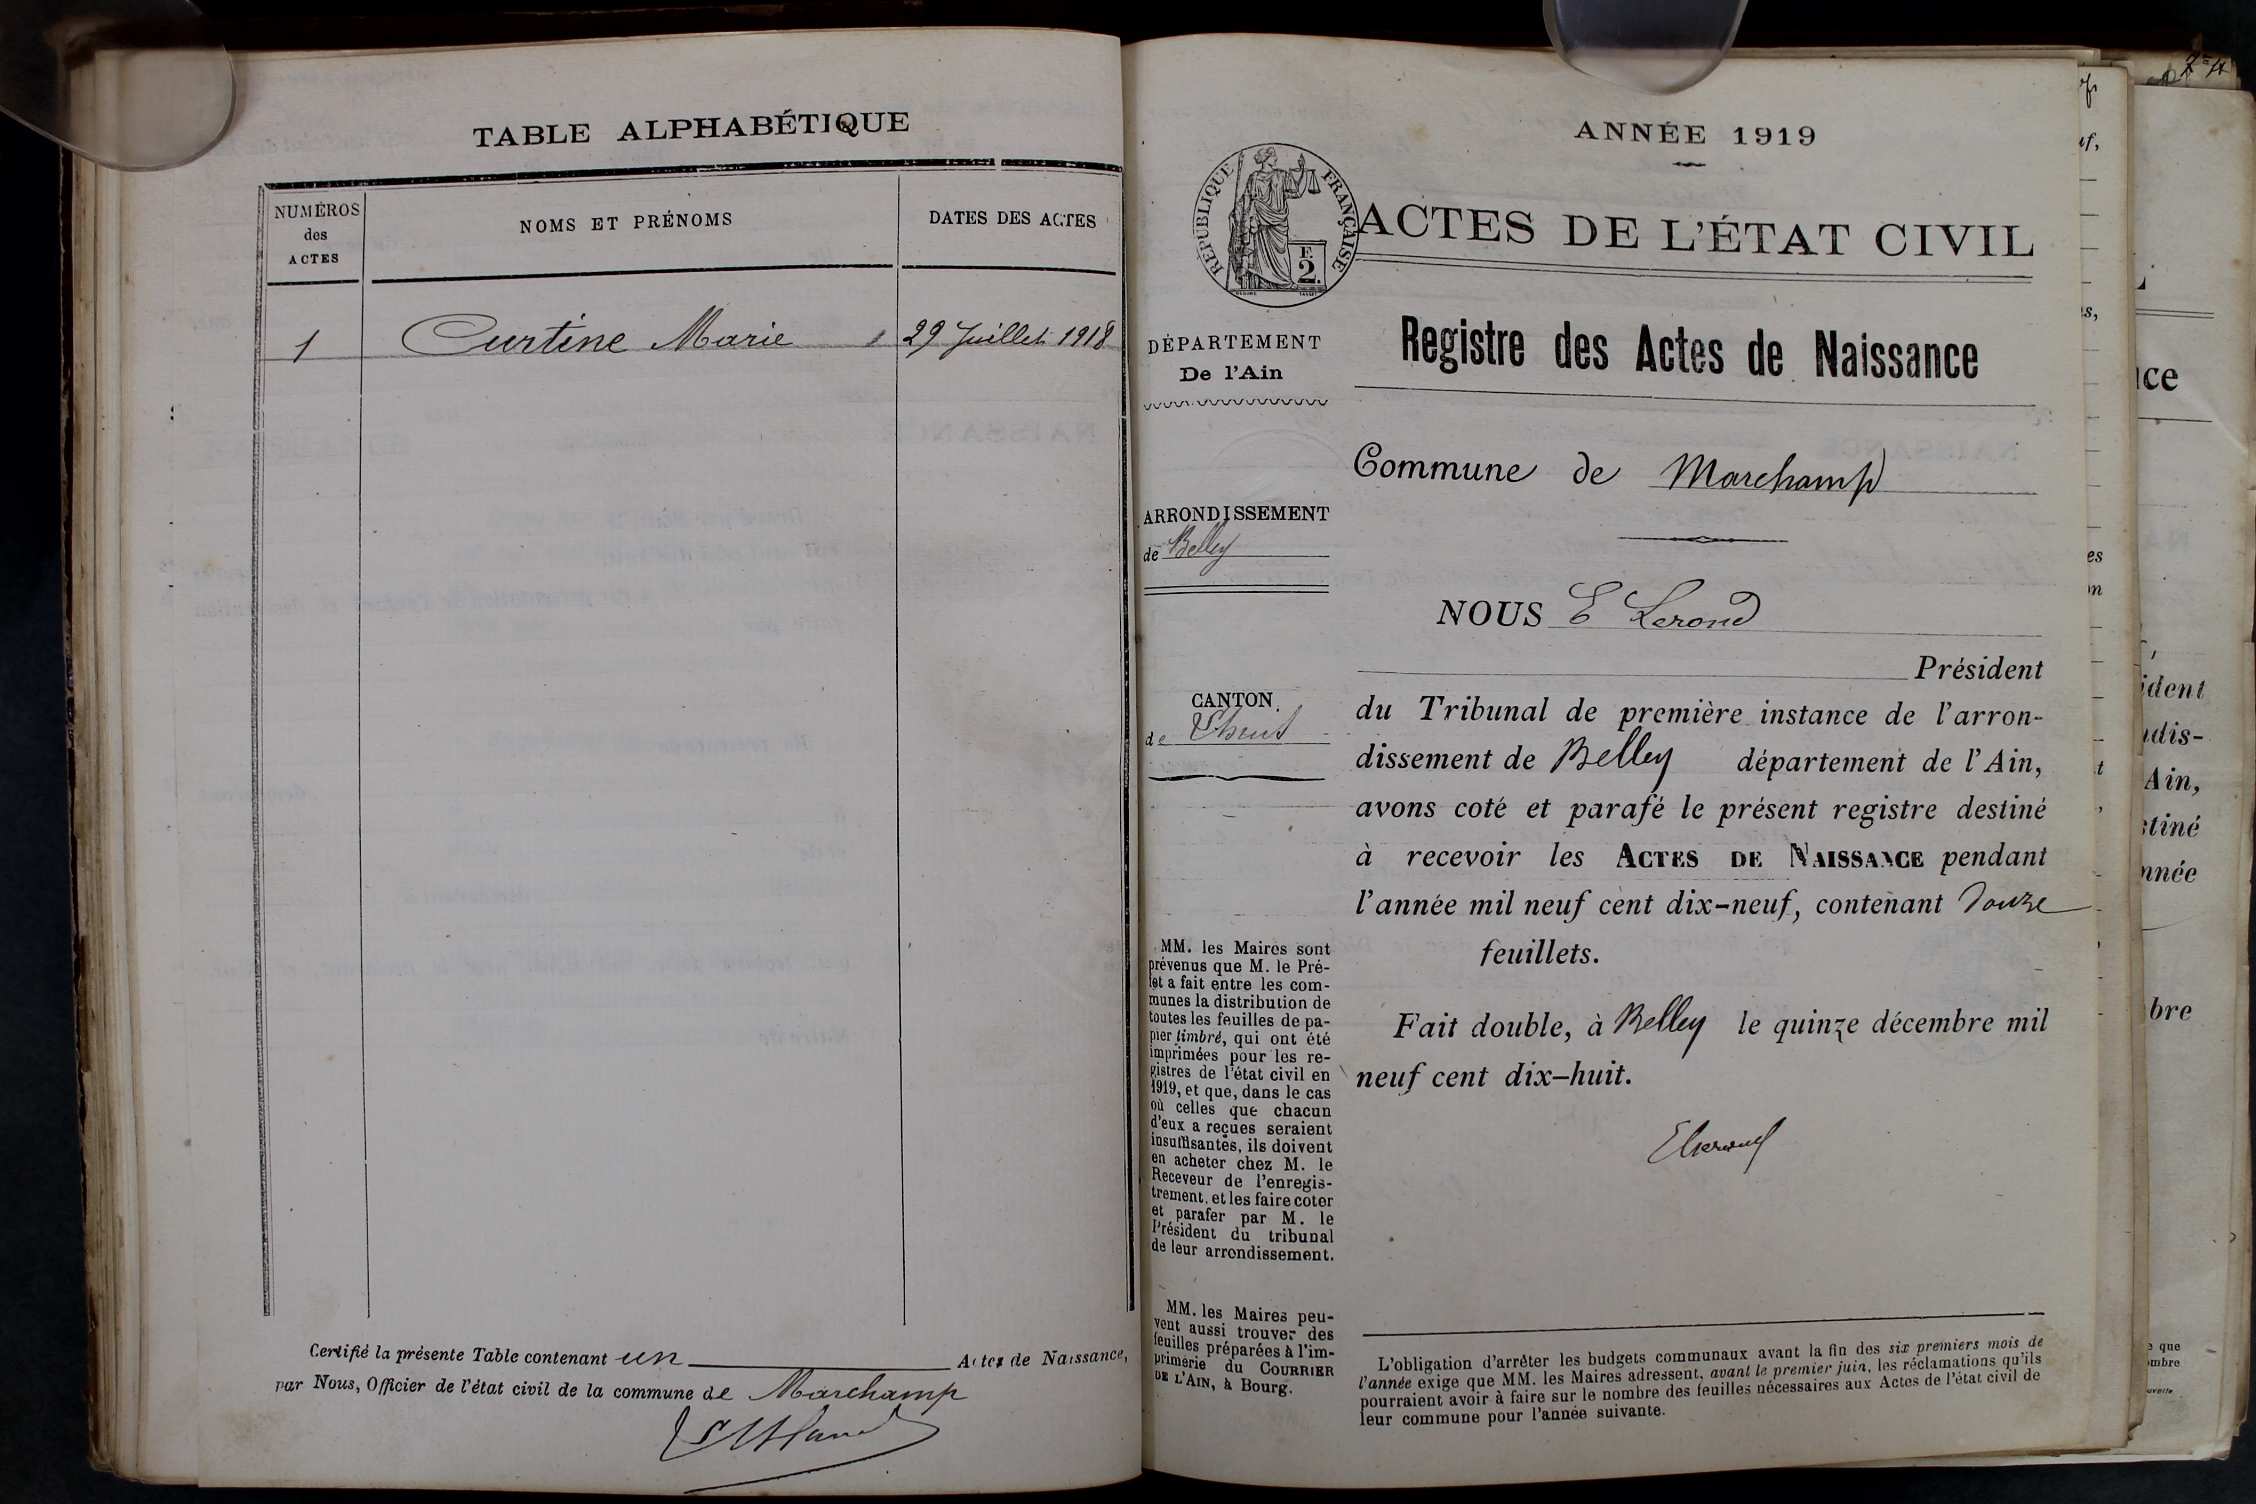 TABLE ALPHABÉTIQUE
NUMÉROS
des
ACTES
NOMS ET PRÉNOMS
DATES DES ACTES
1 Curtine Marie 29 Juillet 1918
Certifié la présente Table contenant un Actes de Naissance,
par Nous, Officier de l'état civil de la commune de Marchamp
ANNÉE 1919
RÉPUBLIQUE FRANÇAISE
F.
2.
ACTES DE L'ÉTAT CIVIL
Registre des Actes de Naissance
DÉPARTEMENT
De l'Ain
Commune de Marchamp
ARRONDISSEMENT
de Belley
NOUS E Lerond
Président
CANTON
de
du Tribunal de première instance de l'arron-
dissement de Belley département de l'Ain,
avons coté et parafé le présent registre destiné
à recevoir les ACTES DE NAISSANCE pendant
l'année mil neuf cent dix-neuf, contenant douze
feuillets.
Fait double, à Belley le quinze décembre mil
neuf cent dix-huit.
MM. les Maires sont
prévenus que M. le Pré-
fet a fait entre les com-
munes la distribution de
toutes les feuilles de pa-
pier timbré, qui ont été
imprimées pour les re-
gistres de l'état civil en
1919, et que, dans le cas
où celles que chacun
d'eux a reçues seraient
insuffisantes, ils doivent
en acheter chez M. le
Receveur de l'enregis-
trement, et les faire coter
et parafer par M. le
Président du tribunal
de leur arrondissement.
MM. les Maires peu-
vent aussi trouver des
feuilles préparées à l'im-
primerie du COURRIER
DE L'AIN, à Bourg.
L'obligation d'arrêter les budgets communaux avant la fin des six premiers mois de
l'année exige que MM. les Maires adressent, avant le premier juin, les réclamations qu'ils
pourraient avoir à faire sur le nombre des feuilles nécessaires aux Actes de l'état civil de
leur commune pour l'année suivante.